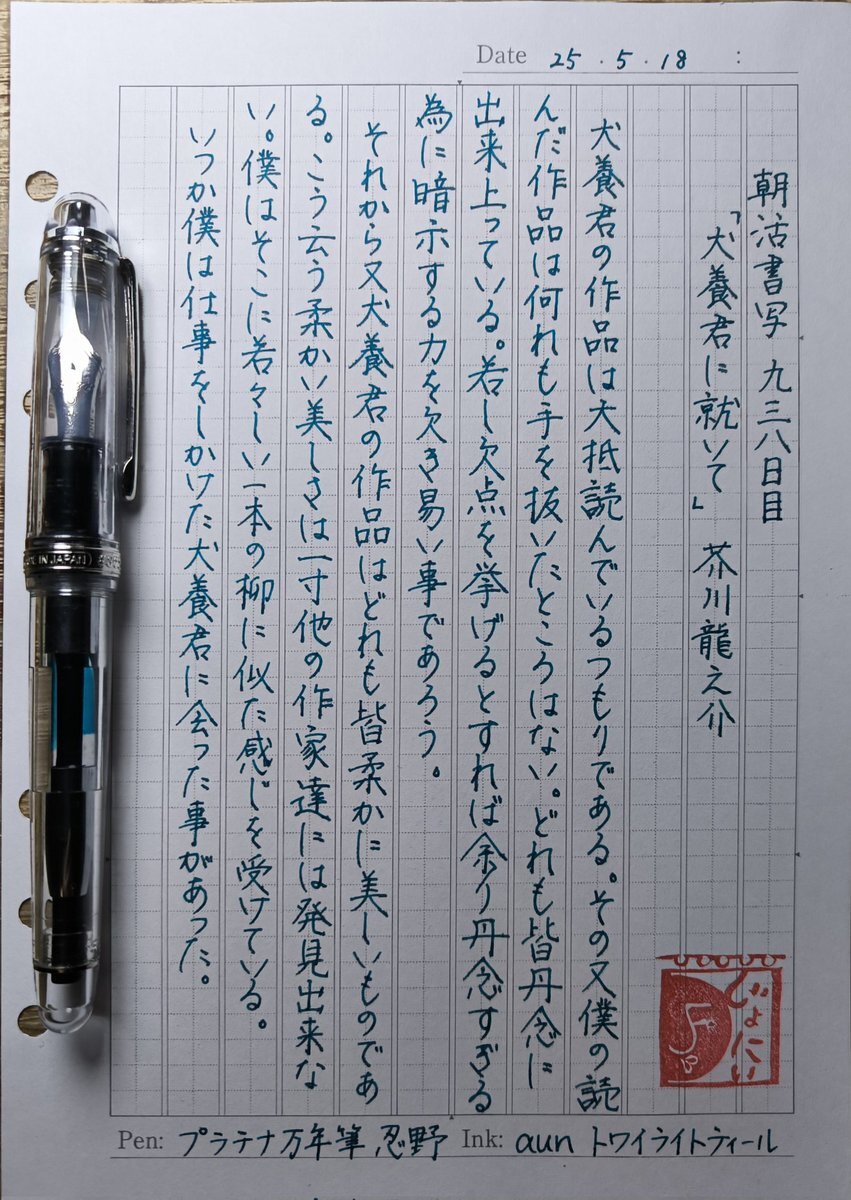 Date 25.5.18 :
朝活書写 九三八日目
「犬養君に就いて」 芥川龍之介
犬養君の作品は大抵読んでいるつもりである。その又僕の読
んだ作品は何れも手を抜いたところはない。どれも皆丹念に
出来上っている。若し欠点を挙げるとすれば余り丹念すぎる
為に暗示する力を欠き易い事であろう。
それから又犬養君の作品はどれも皆柔かに美しいものであ
る。こう云う柔かい美しさは一寸他の作家達には発見出来な
い。僕はそこに若々しい一本の柳に似た感じを受けている。
いつか僕は仕事をしかけた犬養君に会った事があった。
じょにい
Pen: プラチナ万年筆 忍野
Ink: aun トワイライトティール
IN JAPAN